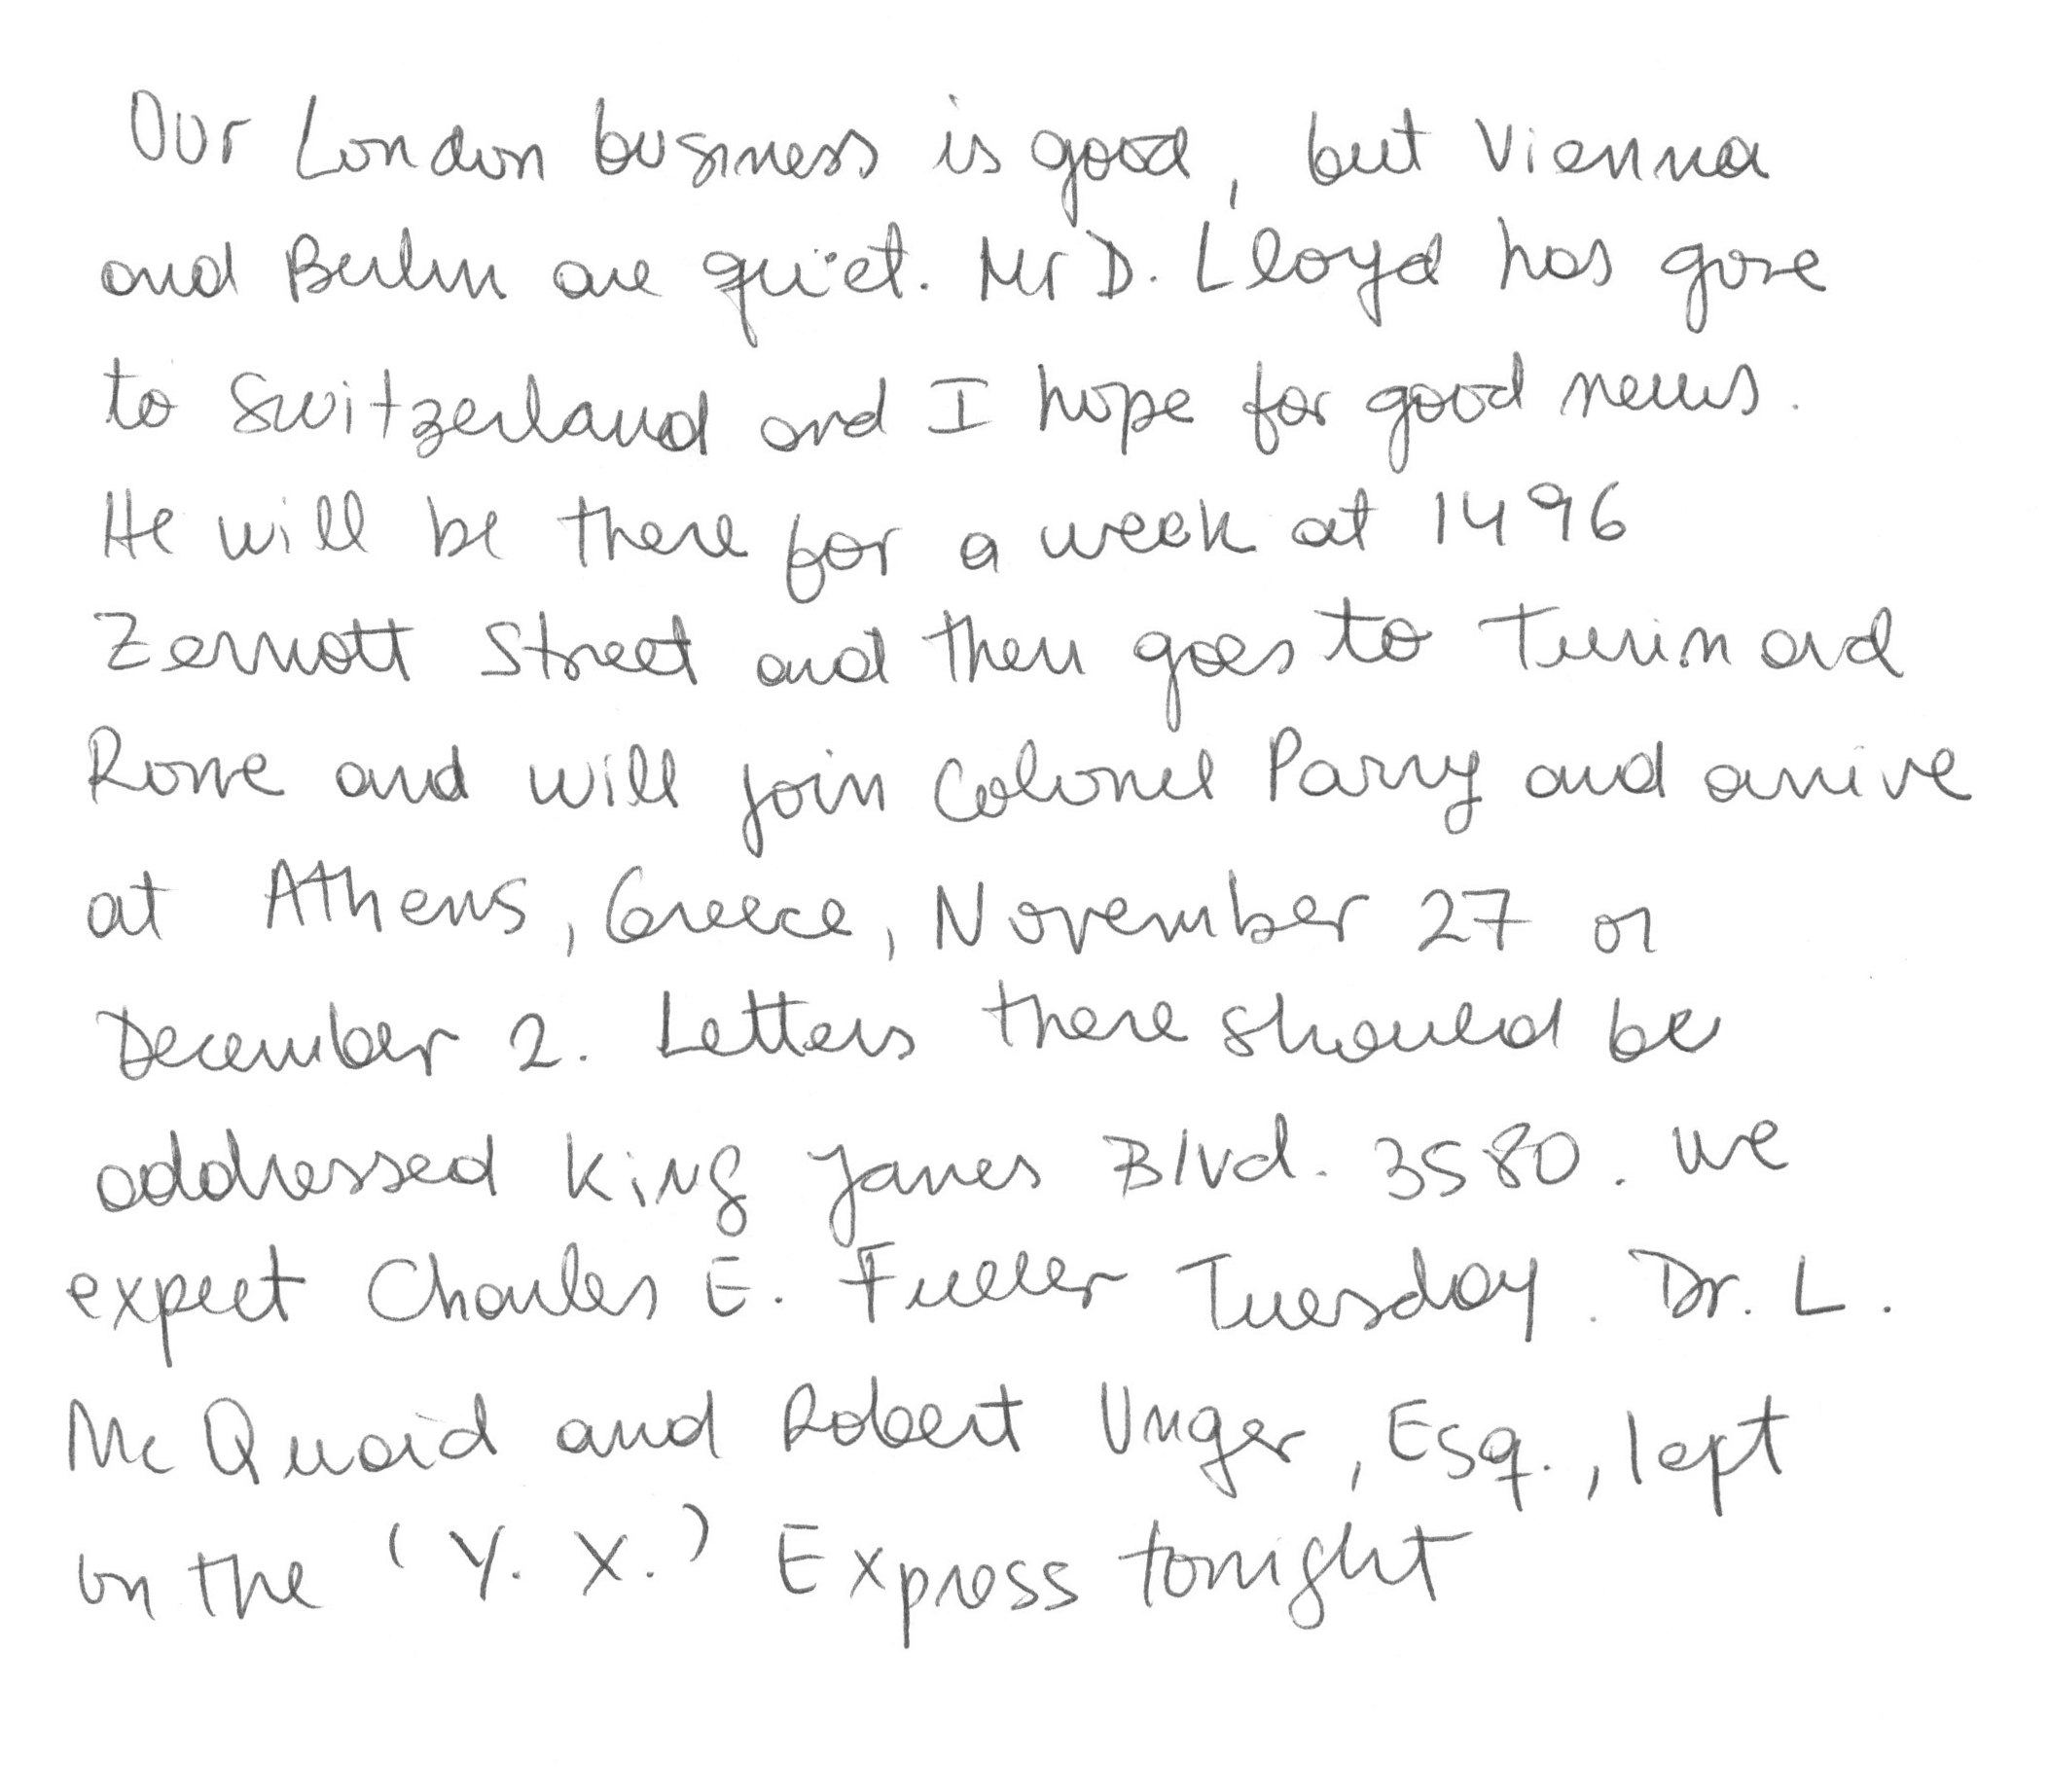 Our London business is good, but Vienna
and Berlin are quiet. Mr D. Lloyd has gone
to Switzerland and I hope for good news.
He will be there for a week at 1496
Zermott Street and then goes to Turin and
Rome and will join Colonel Parry and arrive
at Athens, Greece, November 27 or
December 2. Letters there should be
addressed King James Blvd. 3580. We
expect Charles E. Fuller Tuesday. Dr. L.
Mc Quaid and Robert Unger, Esq., lept
on the 'Y. X.' Express tonight